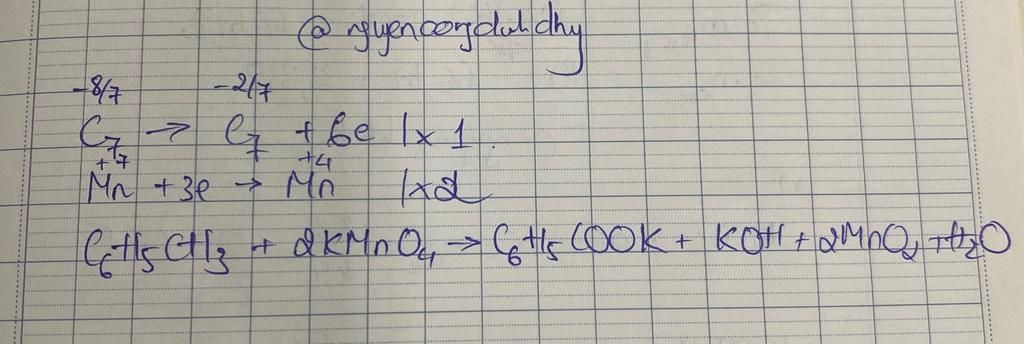 @nguyencongdanhdhy
-8/7 -2/7
C7 → C7 + 6e |x 1
+7 +4
Mn + 3e → Mn |x2
C6H5CH3 + 2KMnO4 → C6H5COOK + KOH + 2MnO2 + H2O